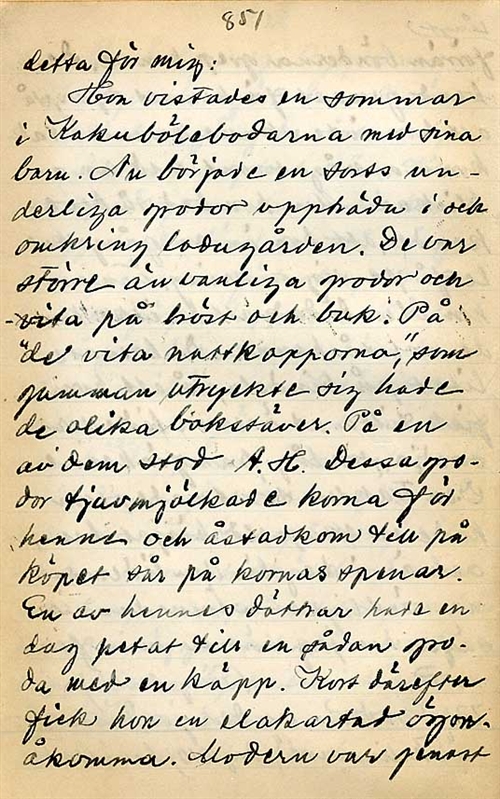 851
detta för mig:
Hon vistades en sommar
i Kakubölebodarna med sina
barn. Nu började en sorts un-
derliga grodor uppträda i och
omkring ladugården. De var
större än vanliga grodor och
vita på bröst och buk. På
"de vita nattkapporna," som
gumman utryckte sig hade
de olika bokstäver. På en
av dem stod A.H. Dessa gro-
dor tjuvmjölkade korna för
henne och åstadkom till på
köpet sår på kornas spenar.
En av hennes döttrar hade en
dag petat till en sådan gro-
da med en käpp. Kort därefter
fick hon en elakartad ögon-
åkomma. Modern var genast